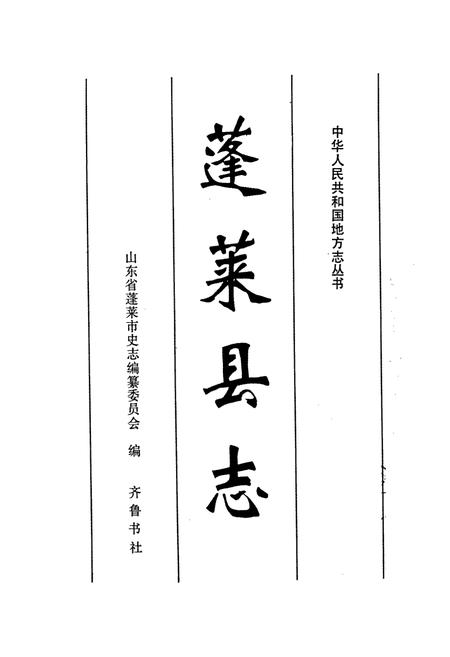 中华人民共和国地方志丛书
蓬莱县志
山东省蓬莱市史志编纂委员会 编
齐鲁书社